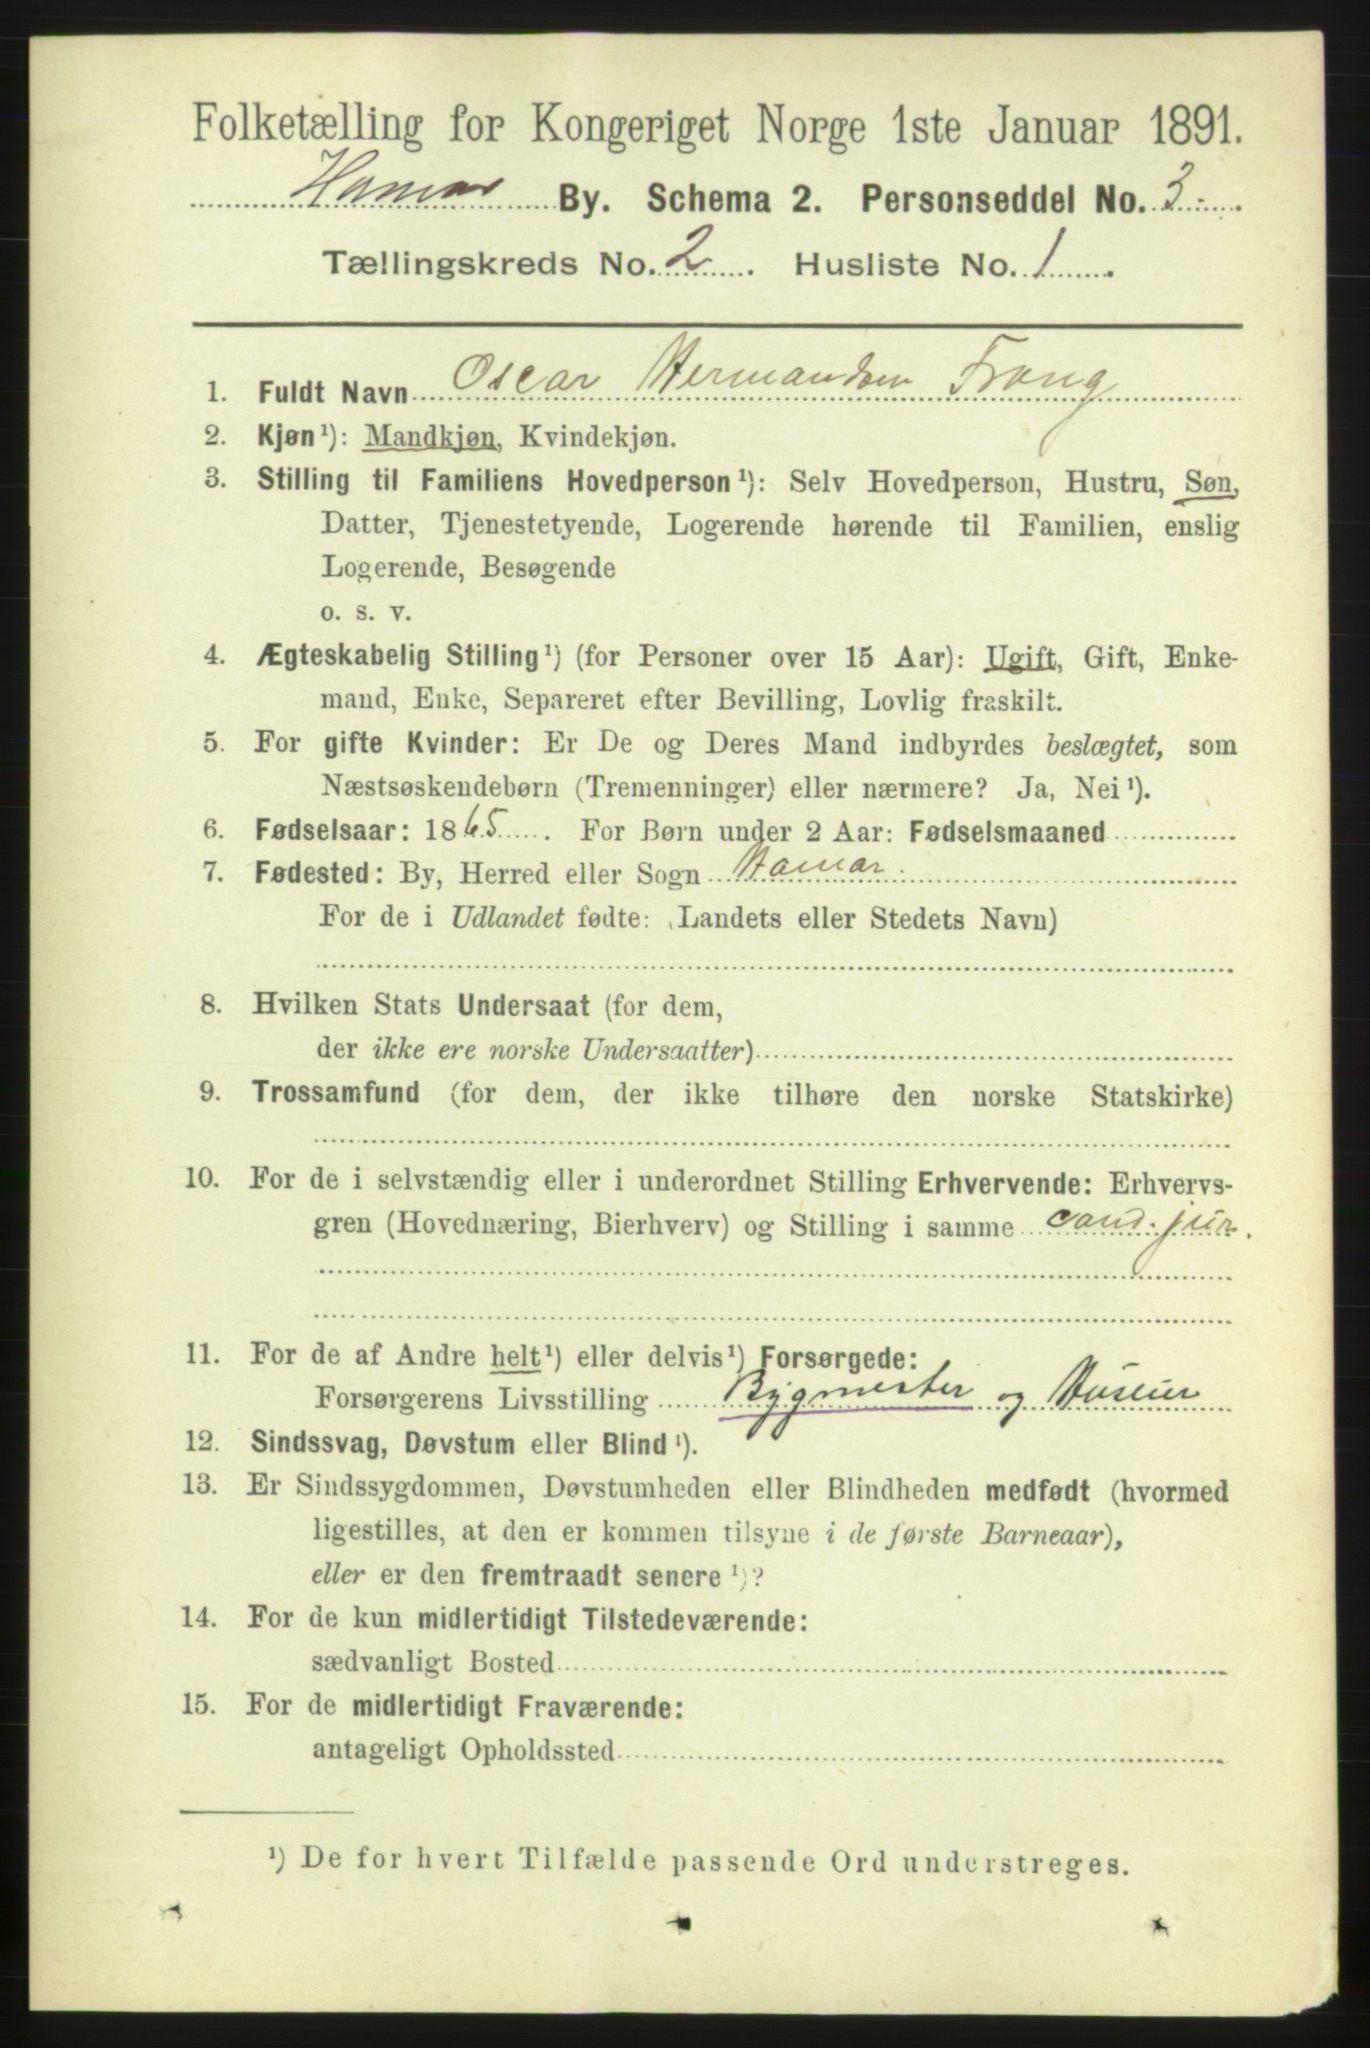 Folketælling for Kongeriget Norge 1ste Januar 1891.
Hamar By. Schema 2. Personseddel No. 3.
Tællingskreds No. 2. Husliste No. 1.
1. Fuldt Navn Oscar Hermandsen Frang
2. Kjøn¹): Mandkjøn, Kvindekjøn.
3. Stilling til Familiens Hovedperson¹): Selv Hovedperson, Hustru, Søn,
Datter, Tjenestetyende, Logerende hørende til Familien, enslig
Logerende, Besøgende
o. s. v.
4. Ægteskabelig Stilling¹) (for Personer over 15 Aar): Ugift, Gift, Enke-
mand, Enke, Separeret efter Bevilling, Lovlig fraskilt.
5. For gifte Kvinder: Er De og Deres Mand indbyrdes beslægtet, som
Næstsøskendebørn (Tremenninger) eller nærmere? Ja, Nei¹).
6. Fødselsaar: 1865. For Børn under 2 Aar: Fødselsmaaned
7. Fødested: By, Herred eller Sogn Hamar.
For de i Udlandet fødte: (Landets eller Stedets Navn)
8. Hvilken Stats Undersaat (for dem,
der ikke ere norske Undersaatter)
9. Trossamfund (for dem, der ikke tilhøre den norske Statskirke)
10. For de i selvstændig eller i underordnet Stilling Erhvervende: Erhvervs-
gren (Hovednæring, Bierhverv) og Stilling i samme cand. jur.
11. For de af Andre helt¹) eller delvis¹) Forsørgede:
Forsørgerens Livsstilling Bygmester og Huseier
12. Sindssvag, Døvstum eller Blind¹).
13. Er Sindssygdommen, Døvstumheden eller Blindheden medfødt (hvormed
ligestilles, at den er kommen tilsyne i de første Barneaar),
eller er den fremtraadt senere¹)?
14. For de kun midlertidigt Tilstedeværende:
sædvanligt Bosted
15. For de midlertidigt Fraværende:
antageligt Opholdssted
¹) De for hvert Tilfælde passende Ord understreges.